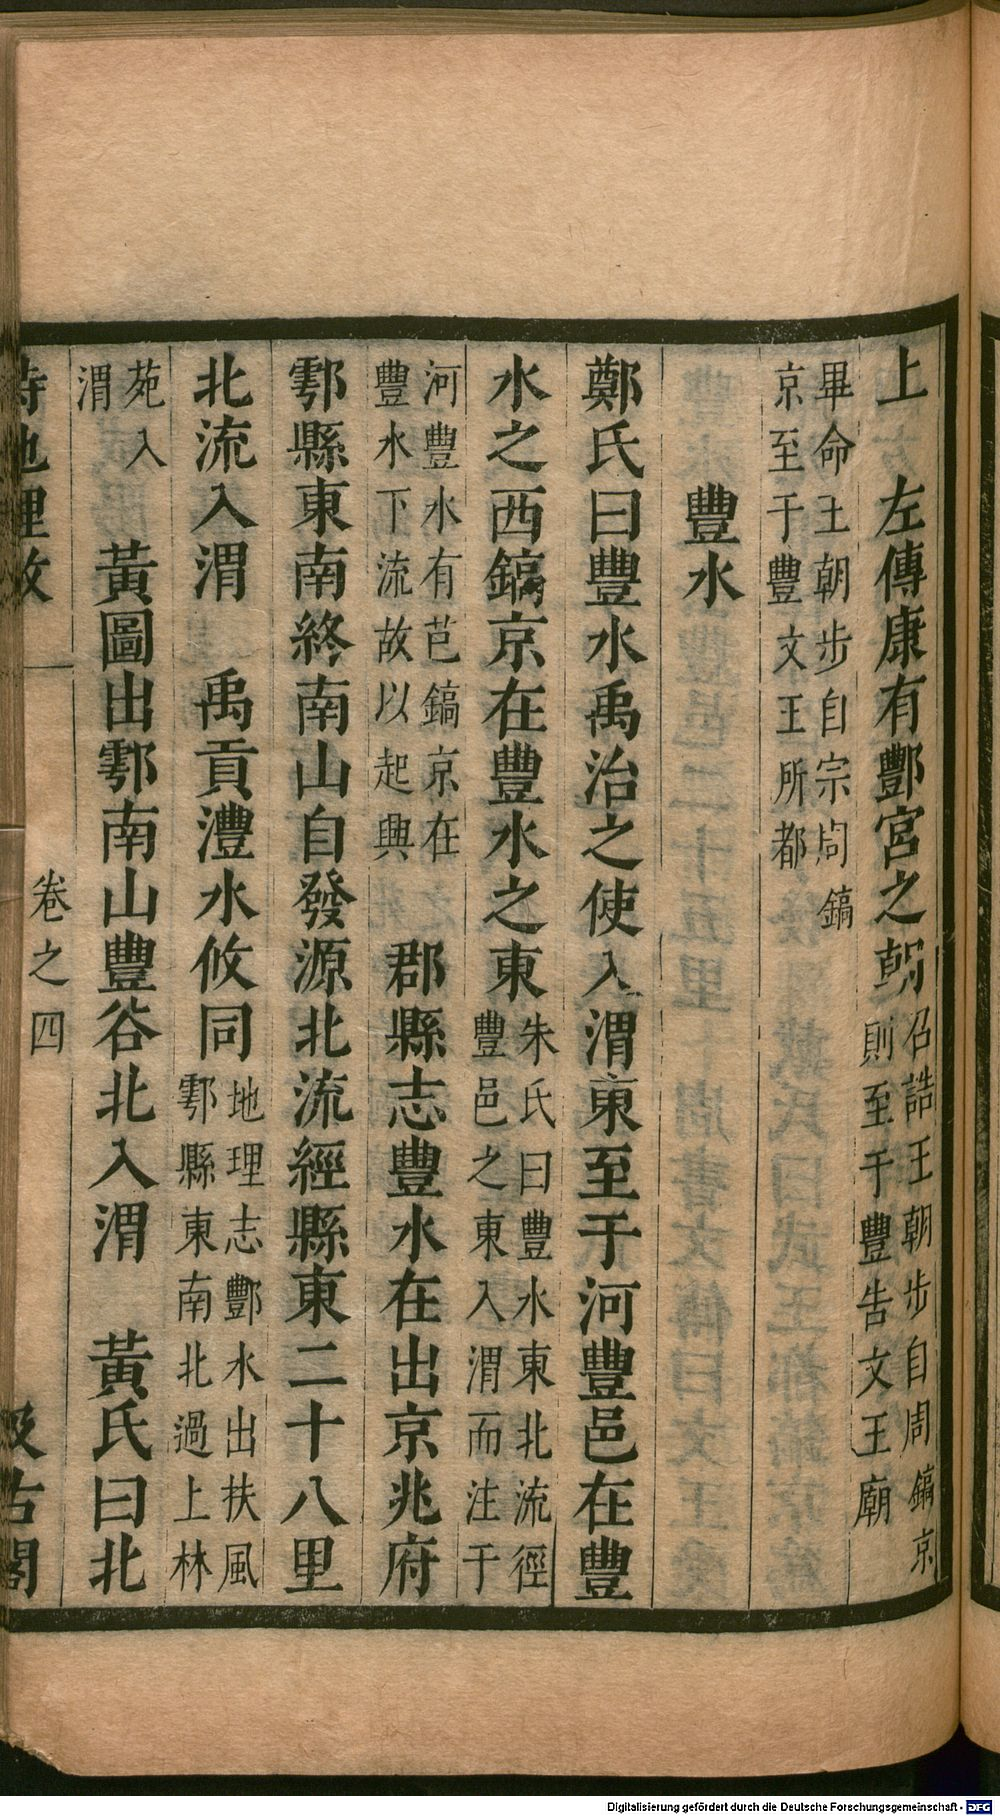 上　左傳康有酆宮之朝
召誥王朝步自周鎬京
則至于豐告文王廟
畢命王朝步自宗周鎬
京至于豐文王所都
豐水
鄭氏曰豐水禹治之使入渭東至于河豐邑在豐
水之西鎬京在豐水之東
朱氏曰豐水東北流徑
豐邑之東入渭而注于
河豐水有芑鎬京在
豐水下流故以起興
郡縣志豐水在出京兆府
鄠縣東南終南山自發源北流經縣東二十八里
北流入渭　禹貢灃水攸同
地理志酆水出扶風
鄠縣東南北過上林
苑入
渭
黃圖出鄠南山豐谷北入渭　黃氏曰北
詩地理攷
卷之四
汲古閣
Digitalisierung gefördert durch die Deutsche Forschungsgemeinschaft - DFG